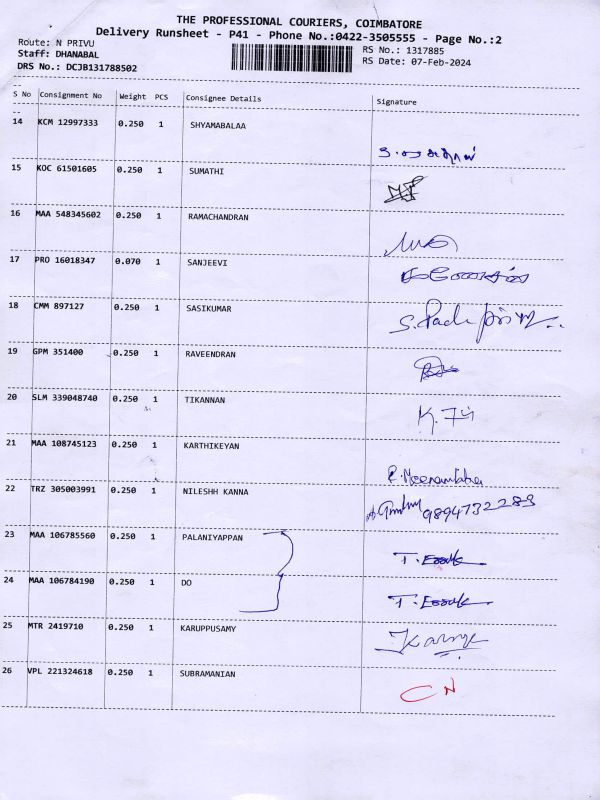 THE PROFESSIONAL COURIERS, COIMBATORE
Delivery Runsheet - P41 - Phone No.:0422-3505555 - Page No.:2
Route: N PRIVU
RS No.: 1317885
Staff: DHANABAL
RS Date: 07-Feb-2024
DRS No.: DCJB131788502
S No Consignment No Weight PCS Consignee Details Signature
14 KCM 12997333 0.250 1 SHYAMABALAA
15 KOC 61501605 0.250 1 SUMATHI
16 MAA 548345602 0.250 1 RAMACHANDRAN
17 PRO 16018347 0.070 1 SANJEEVI
18 CMM 897127 0.250 1 SASIKUMAR
19 GPM 351400 0.250 1 RAVEENDRAN
20 SLM 339048740 0.250 1 TIKANNAN
21 MAA 108745123 0.250 1 KARTHIKEYAN
22 TRZ 305003991 0.250 1 NILESHH KANNA 9894732283
23 MAA 106785560 0.250 1 PALANIYAPPAN
24 MAA 106784190 0.250 1 DO
25 MTR 2419710 0.250 1 KARUPPUSAMY
26 VPL 221324618 0.250 1 SUBRAMANIAN CN